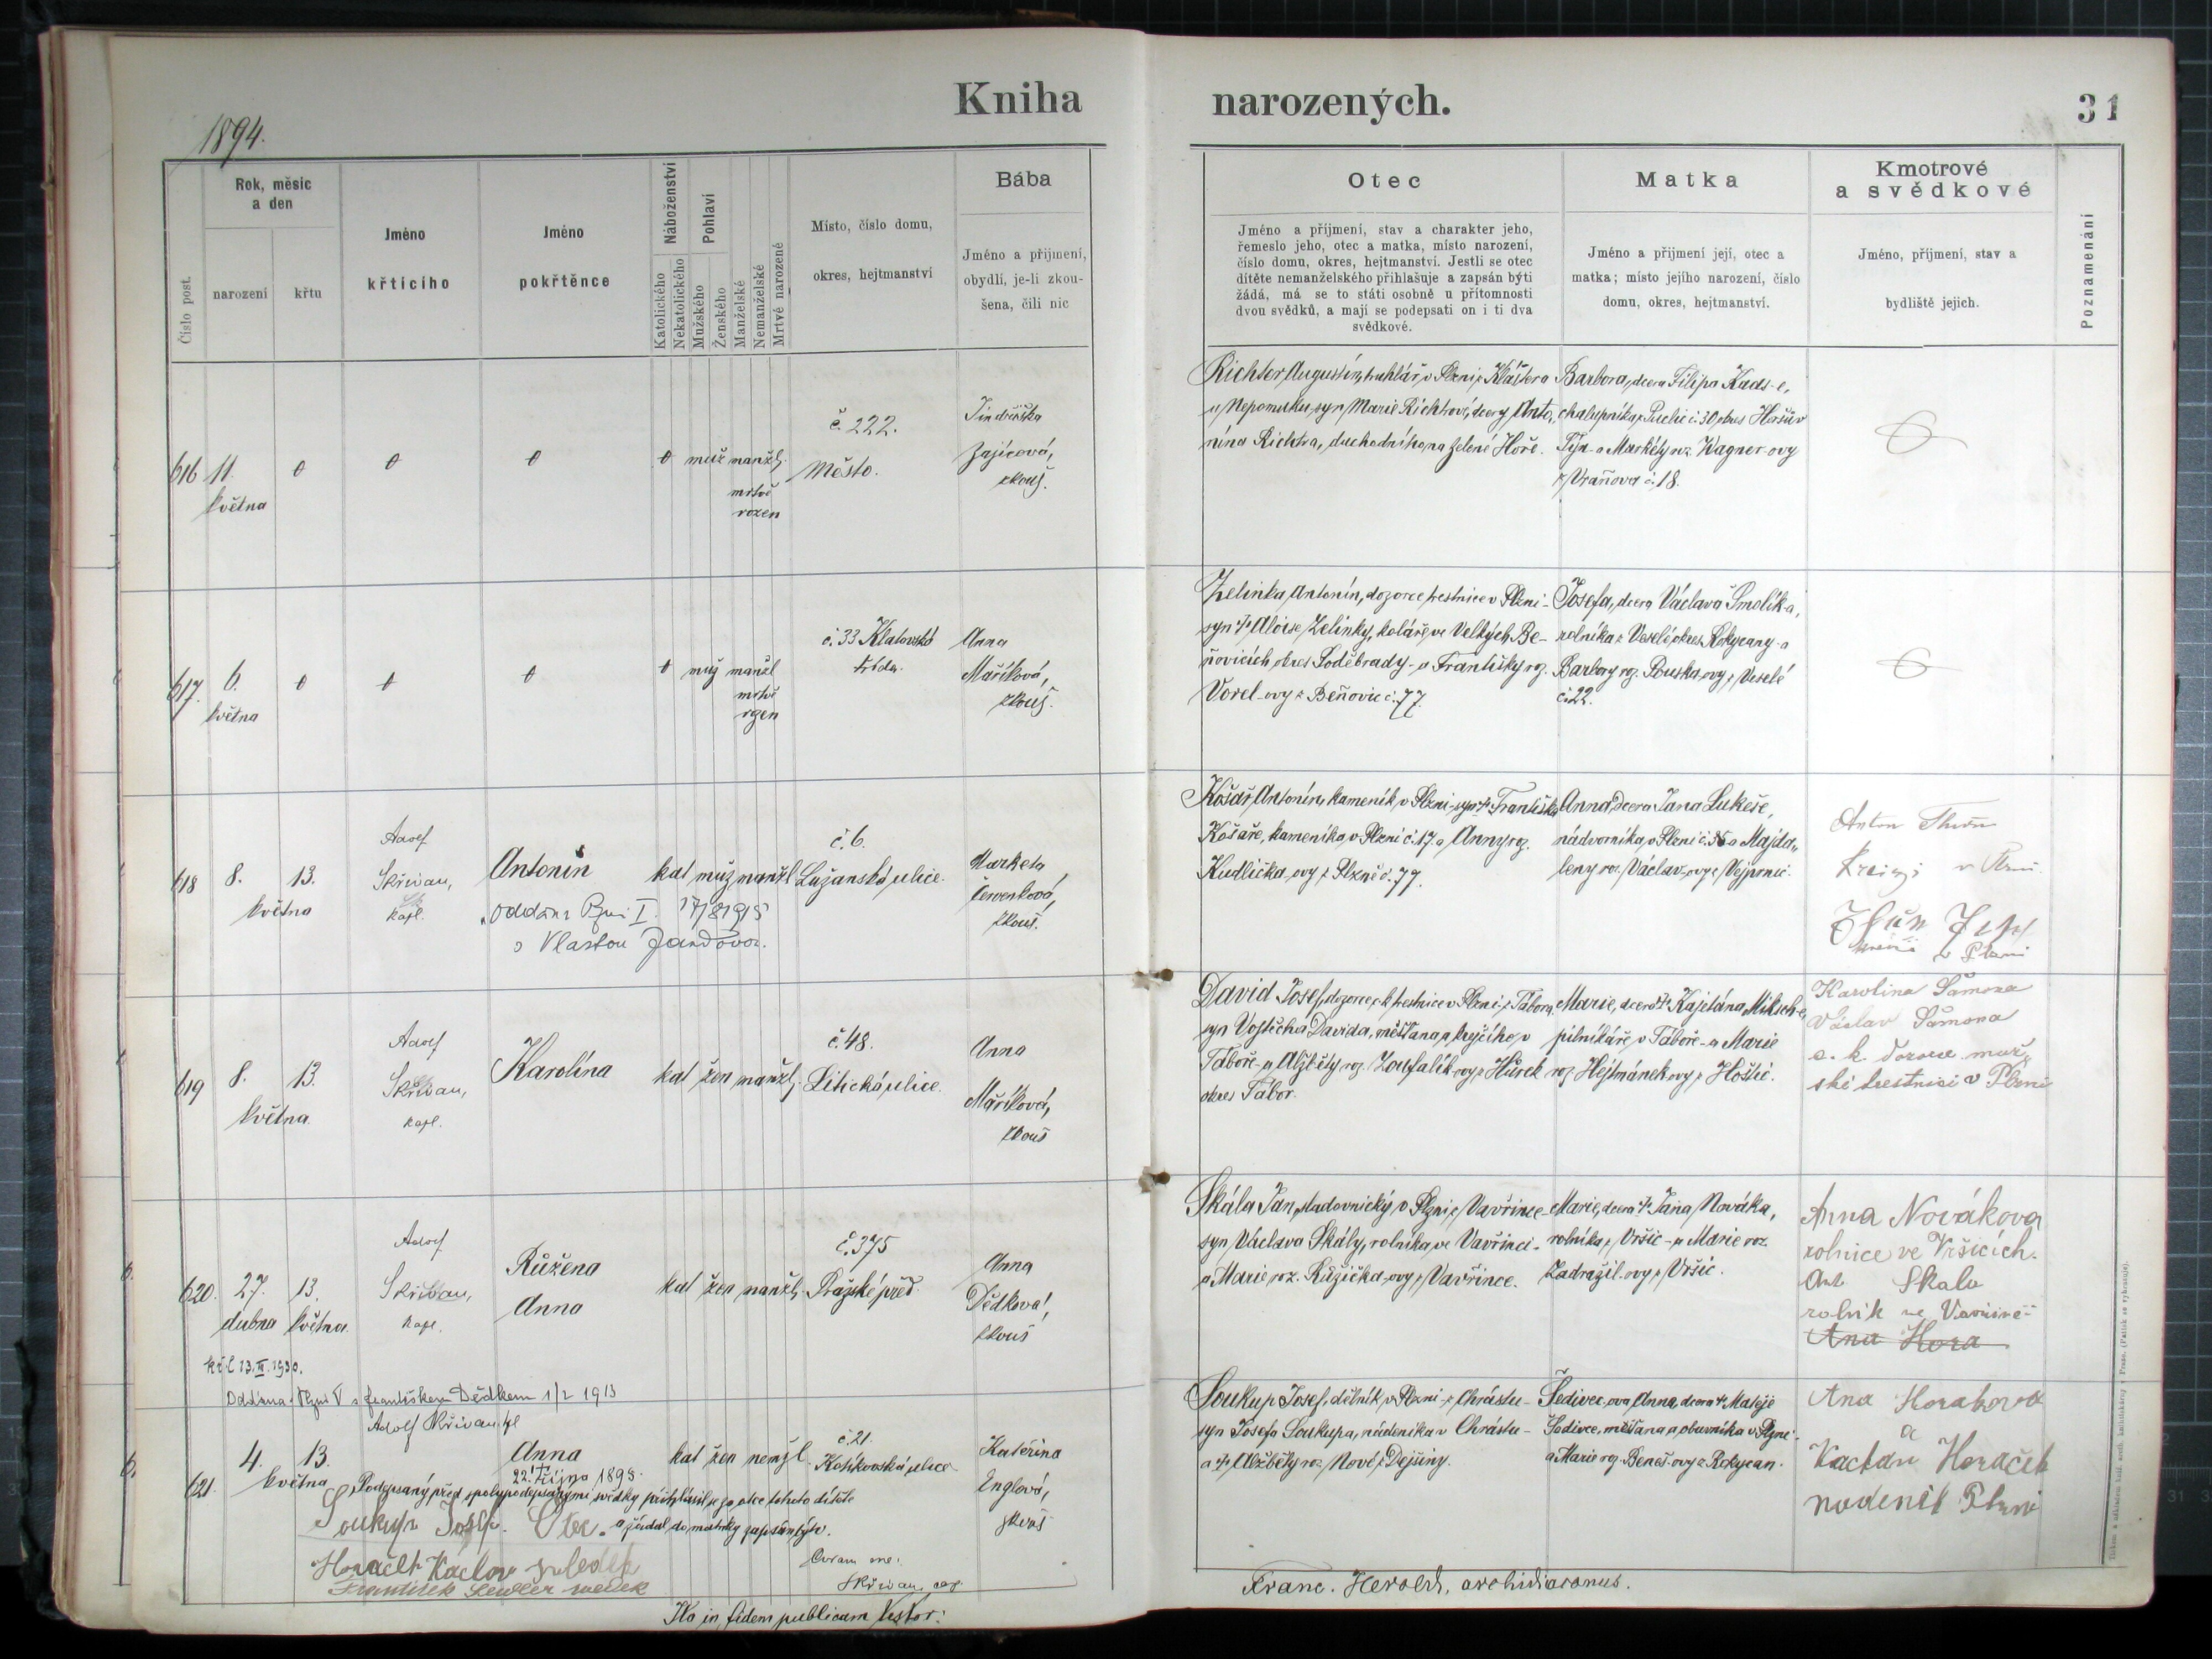 Kniha narozených.
31
1894.
Číslo post.
Rok, měsíc
a den
narození
křtu
Jméno
křtícího
Jméno
pokřtěnce
Náboženství
Katolického
Nekatolického
Pohlaví
Mužského
Ženského
Manželské
Nemanželské
Mrtvě narozené
Místo, číslo domu,
okres, hejtmanství
Bába
Jméno a příjmení,
obydlí, je-li zkou-
šena, čili nic
Otec
Jméno a příjmení, stav a charakter jeho,
řemeslo jeho, otec a matka, místo narození,
číslo domu, okres, hejtmanství. Jestli se otec
dítěte nemanželského přihlašuje a zapsán býti
žádá, má se to státi osobně u přítomnosti
dvou svědků, a mají se podepsati on i ti dva
svědkové.
Matka
Jméno a příjmení její, otec a
matka; místo jejího narození, číslo
domu, okres, hejtmanství.
Kmotrové
a svědkové
Jméno, příjmení, stav a
bydliště jejich.
Poznamenání
616 11.
května
muž manžl.
mrtvě
rozen
č. 222.
Město.
Jindřiška
Zajícová,
zkouš.
Richter Augustin, truhlář v Plzni z Kláštera
u Nepomuku, syn Marie Richtrové, dcery Anto-
nína Richtra, duchodního na Zelené Hoře.
Barbora, dcera Filipa Kads-e,
chalupníka z č. 30 okres Horšův
Týn a Markéty roz. Wagner-ovy
z Vraňova č. 18.
617. 6.
května
muž manžl
mrtvě
rozen
č. 33 Klatovská
třída.
Anna
Maříková,
zkouš.
Zelinka Antonín, dozorce trestnice v Plzni -
syn † Aloise Zelinky, koláře ve Velkých Be-
ňovicích okres Poděbrady - a Františky roz.
Vorel-ovy z Beňovic č. 77.
Josefa, dcera Václava Smolík-a,
rolníka z Veselé okres Rokycany - a
Barbory roz. Pouska-ovy z Veselé
č. 22.
618 8. 13.
května
Adolf
Skřivan,
kapl.
Antonín
kat muž manžl
Oddán v Plzni I. 17/8 1915
s Vlastou Jandovou.
č. 6.
Lužanská ulice.
Marketa
Červenková,
zkouš.
Košař Antonín, kameník v Plzni - syn † Františka
Košaře, kameníka v Plzni č. 17. a Anny roz.
Kudlička-ovy z Plzně č. 77.
Anna, dcera Jana Lukeše,
nádvorníka v Plzni č. 35 a Majda-
leny roz. Václav-ovy z Vejprnic.
Anton
v Plzni
v Plzni
619 8. 13.
května
Adolf
Skřivan,
kapl.
Karolína
kat žen manžl.
č. 48.
Litická ulice.
Anna
Maříková,
zkouš
David Josef, dozorce c. k. trestnice v Plzni z Tábora,
syn Vojtěcha Davida, měšťana a krejčího v
Táboře - a Alžběty roz. Zachfalík-ovy z Hůrek
okres Tábor.
Marie, dcera † Kajetána Miksch-e,
pilníkáře v Táboře - a Marie
roz. Hejtmánek-ovy z Hoštic.
Karolina Šamona
Václav Šamona
c. k. dozorce muž-
ské trestnici v Plzni
620. 27. 13.
dubna května
Adolf
Skřivan,
kapl.
Růžena
Anna
kat žen manžl.
č. 375
Pražské před.
Anna
Dědková,
zkouš
křl 13.III.1930.
Oddána v Plzni V s Františkem Dědkem 1/2 1913
Skála Jan, sladovnický v Plzni z Vavřince -
syn Václava Skály, rolníka ve Vavřinci -
a Marie roz. Růžička-ovy z Vavřince.
Marie, dcera † Jana Nováka,
rolníka z Vršic - a Marie roz.
Zadražil-ovy z Vršic.
Anna Novákova
rolnice ve Vršicích.
Ant Skala
rolník ve Vavřinci
Ana Hora
621. 4. 13.
května
Adolf Skřivan, kpl
Anna
† 22. října 1895.
kat žen nemžl.
č. 21.
Kotíkovská ulice
Kateřina
Englová,
zkouš
Podepsaný před spolupodepsanými svědky přihlásil se za otce tohoto dítěte
a žádal do matriky zapsán býti.
Soukup Josef. Otec.
Horaček Vaclav svědek
František svědek
Coram me:
Skřivan, cap.
Soukup Josef, dělník v Plzni z Chrástu -
syn Josefa Soukupa, nádeníka v Chrástu -
a † Alžběty roz. Nové z Dejšiny.
Šedivec-ova Anna, dcera † Matěje
Šedivce, měšťana a obuvníka v Plzni -
a Marie roz. Beneš-ovy z Rokycan.
Ana Horakova
a
Vaclav Horaček
nadenik Plzni
Ita in fidem publicam testor:
Franc. Herold, archidiaconus.